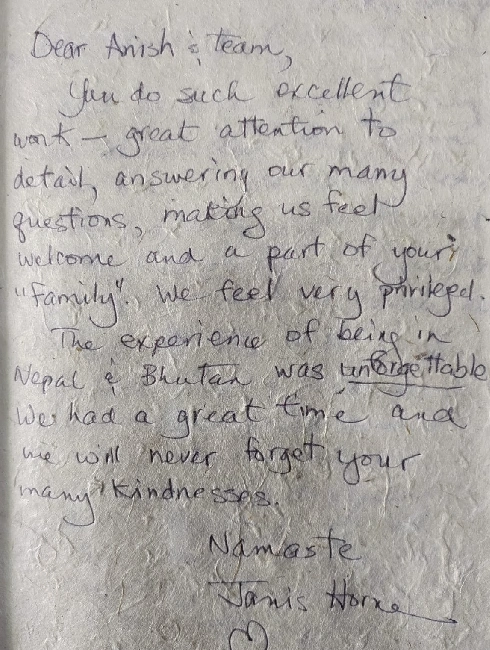 Dear Anish & team,
You do such excellent
work – great attention to
detail, answering our many
questions, making us feel
welcome and a part of your
"family". We feel very privileged.
The experience of being in
Nepal & Bhutan was unforgettable
We had a great time and
we will never forget your
many kindnesses.
Namaste
Janis Horne